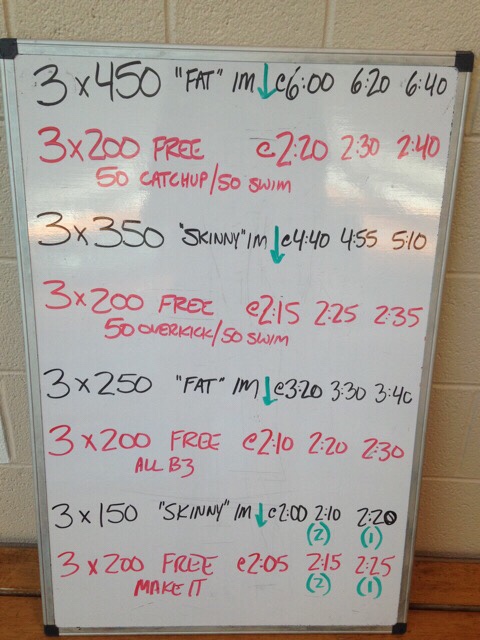 3 x 450 "FAT" IM ↓ @6:00 6:20 6:40
3 x 200 FREE @2:20 2:30 2:40
50 CATCHUP/50 SWIM
3 x 350 "SKINNY" IM ↓ @4:40 4:55 5:10
3 x 200 FREE @2:15 2:25 2:35
50 OVERKICK/50 SWIM
3 x 250 "FAT" IM ↓ @3:20 3:30 3:40
3 x 200 FREE @2:10 2:20 2:30
ALL B3
3 x 150 "SKINNY" IM ↓ @2:00 2:10 2:20
(2) (1)
3 x 200 FREE @2:05 2:15 2:25
MAKE IT (2) (1)